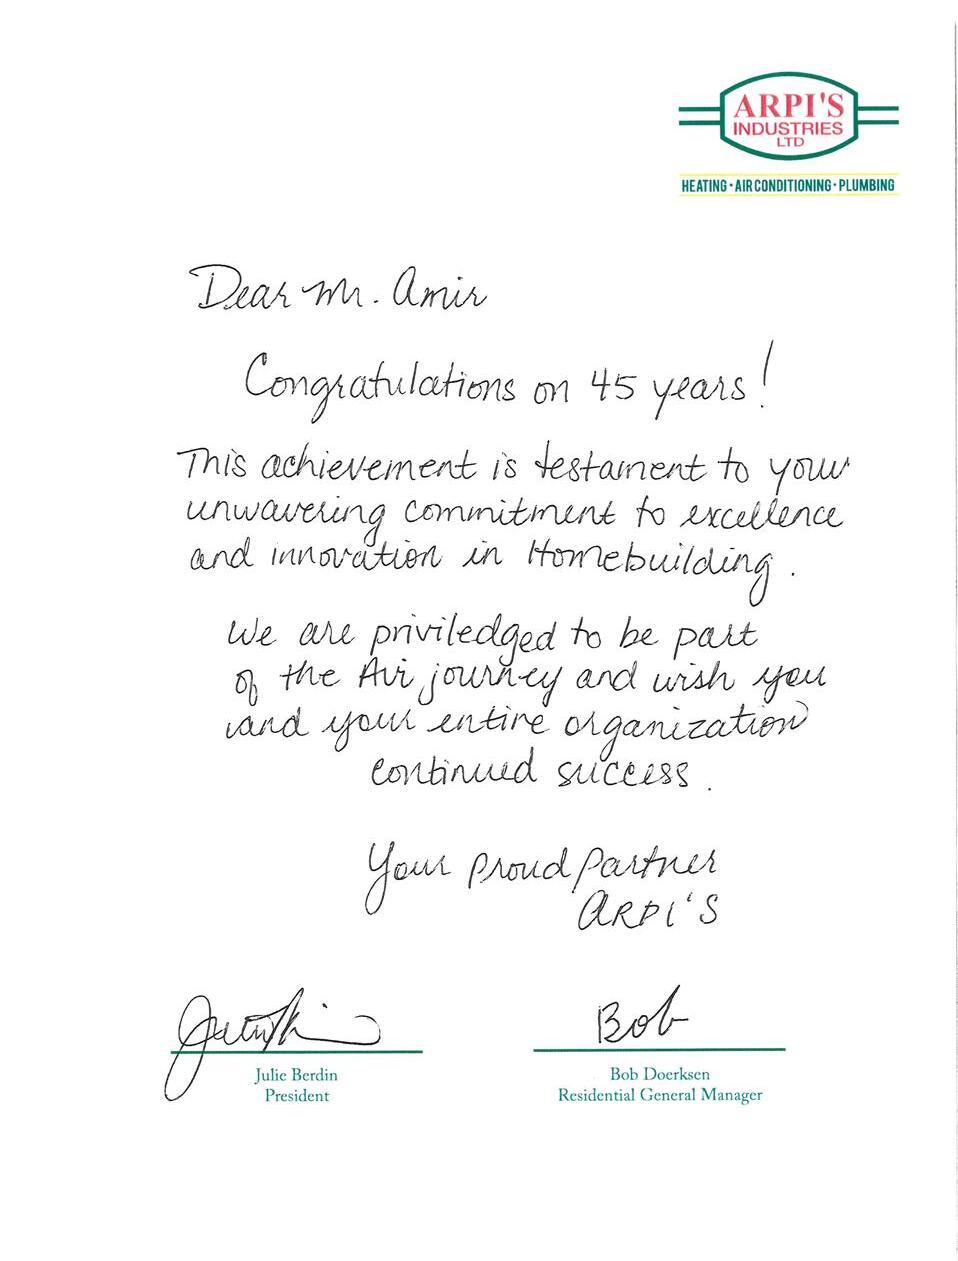 ARPI'S
INDUSTRIES
LTD
HEATING · AIR CONDITIONING · PLUMBING
Dear Mr. Amir
Congratulations on 45 years!
This achievement is testament to your
unwavering commitment to excellence
and innovation in Homebuilding.
We are priviledged to be part
of the Avi journey and wish you
and your entire organization
continued success.
Your proud partner
ARPI'S
Bob
Julie Berdin
President
Bob Doerksen
Residential General Manager